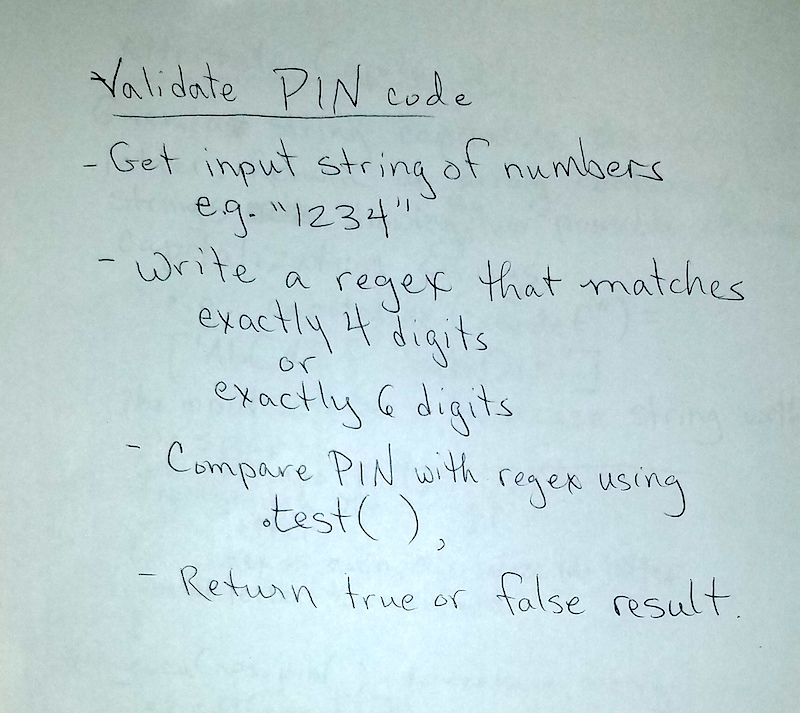 Validate PIN code
- Get input string of numbers
e.g. "1234"
- Write a regex that matches
exactly 4 digits
or
exactly 6 digits
- Compare PIN with regex using
.test( ),
- Return true or false result.